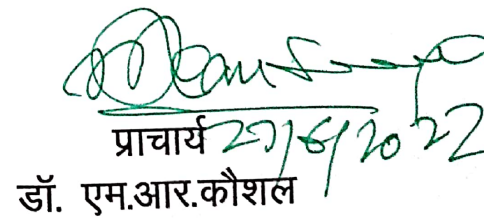 प्राचार्य 27/6/2022
डॉ. एम.आर.कौशल